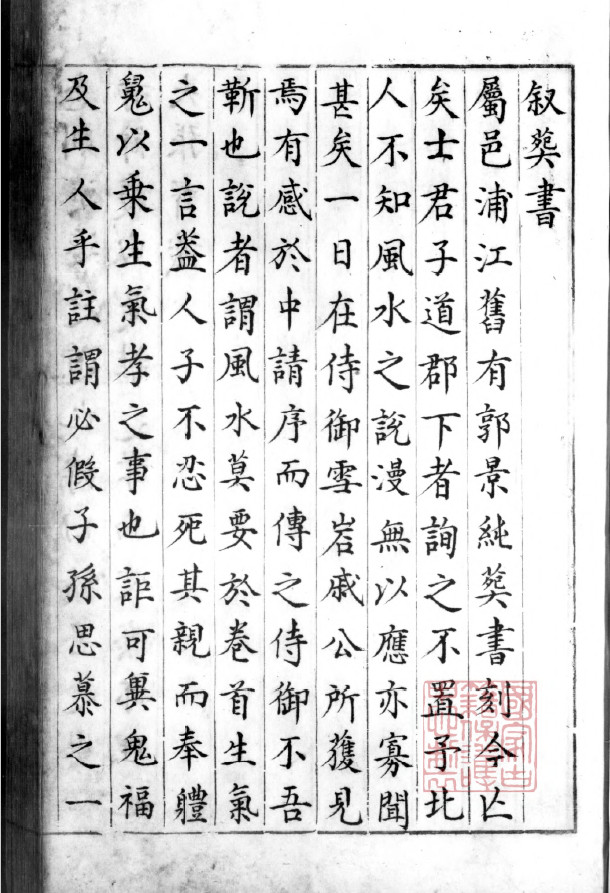 叙葬書
屬邑浦江舊有郭景純葬書刻今亾
矣士君子道郡下者詢之不置予北
人不知風水之說漫無以應亦寡聞
甚矣一日在侍御雪岩戚公所獲見
焉有感於中請序而傳之侍御不吾
靳也說者謂風水莫要於卷首生氣
之一言葢人子不忍死其親而奉軆
魄以乗生氣孝之事也詎可冀鬼福
及生人乎註謂必假子孫思慕之一